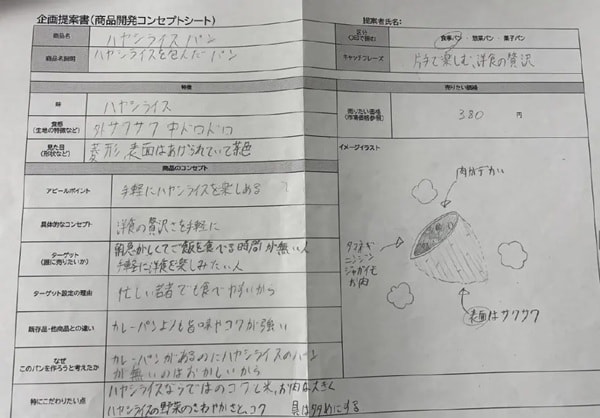 企画提案書(商品開発コンセプトシート)
提案者氏名:
商品名 ハヤシライスパン
区分(○印で囲む) 食事パン・惣菜パン・菓子パン
商品名説明 ハヤシライスを包んだパン
キャッチフレーズ 片手で楽しむ、洋食の贅沢
特徴
味 ハヤシライス
食感(生地の特徴など) 外サクサク 中ドロドロ
見た目(形状など) 菱形、表面はあげられていて茶色
売りたい価格
売りたい価格(市場価格参照) 380 円
商品のコンセプト
アピールポイント 手軽にハヤシライスを楽しめる
具体的なコンセプト 洋食の贅沢さを手軽に
ターゲット(誰に売りたいか) てご飯を食べる時間が無い人
手軽に洋食を楽しみたい人
ターゲット設定の理由 忙しい若者でも食べやすいから
既存品・他商品との違い カレーパンよりも旨味やコクが強い
なぜこのパンを作ろうと考えたか カレーパンがあるのにハヤシライスのパンが無いのはおかしいから
特にこだわりたい点 ハヤシライスならではのコクと米、お肉は大きく
ハヤシライスの野菜のさわやかさと、コク 具は多めにする
イメージイラスト
肉がデカい
タマネギ
ニンジン
ジャガイモ
お肉
表面はサクサク